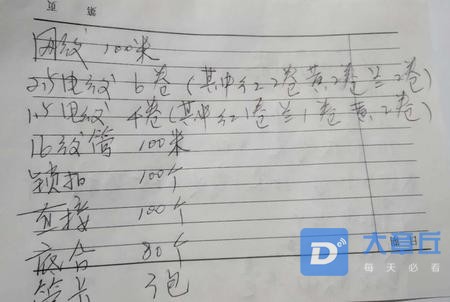 第 页
网线 100米
2.5电线 6卷(其中红2卷黄2卷兰2卷)
1.5电线 4卷(其中红1卷兰1卷黄2卷)
16线管 100米
锁扣 100个
直接 100个
底合 80个
管卡 3包
大章丘
每天必看